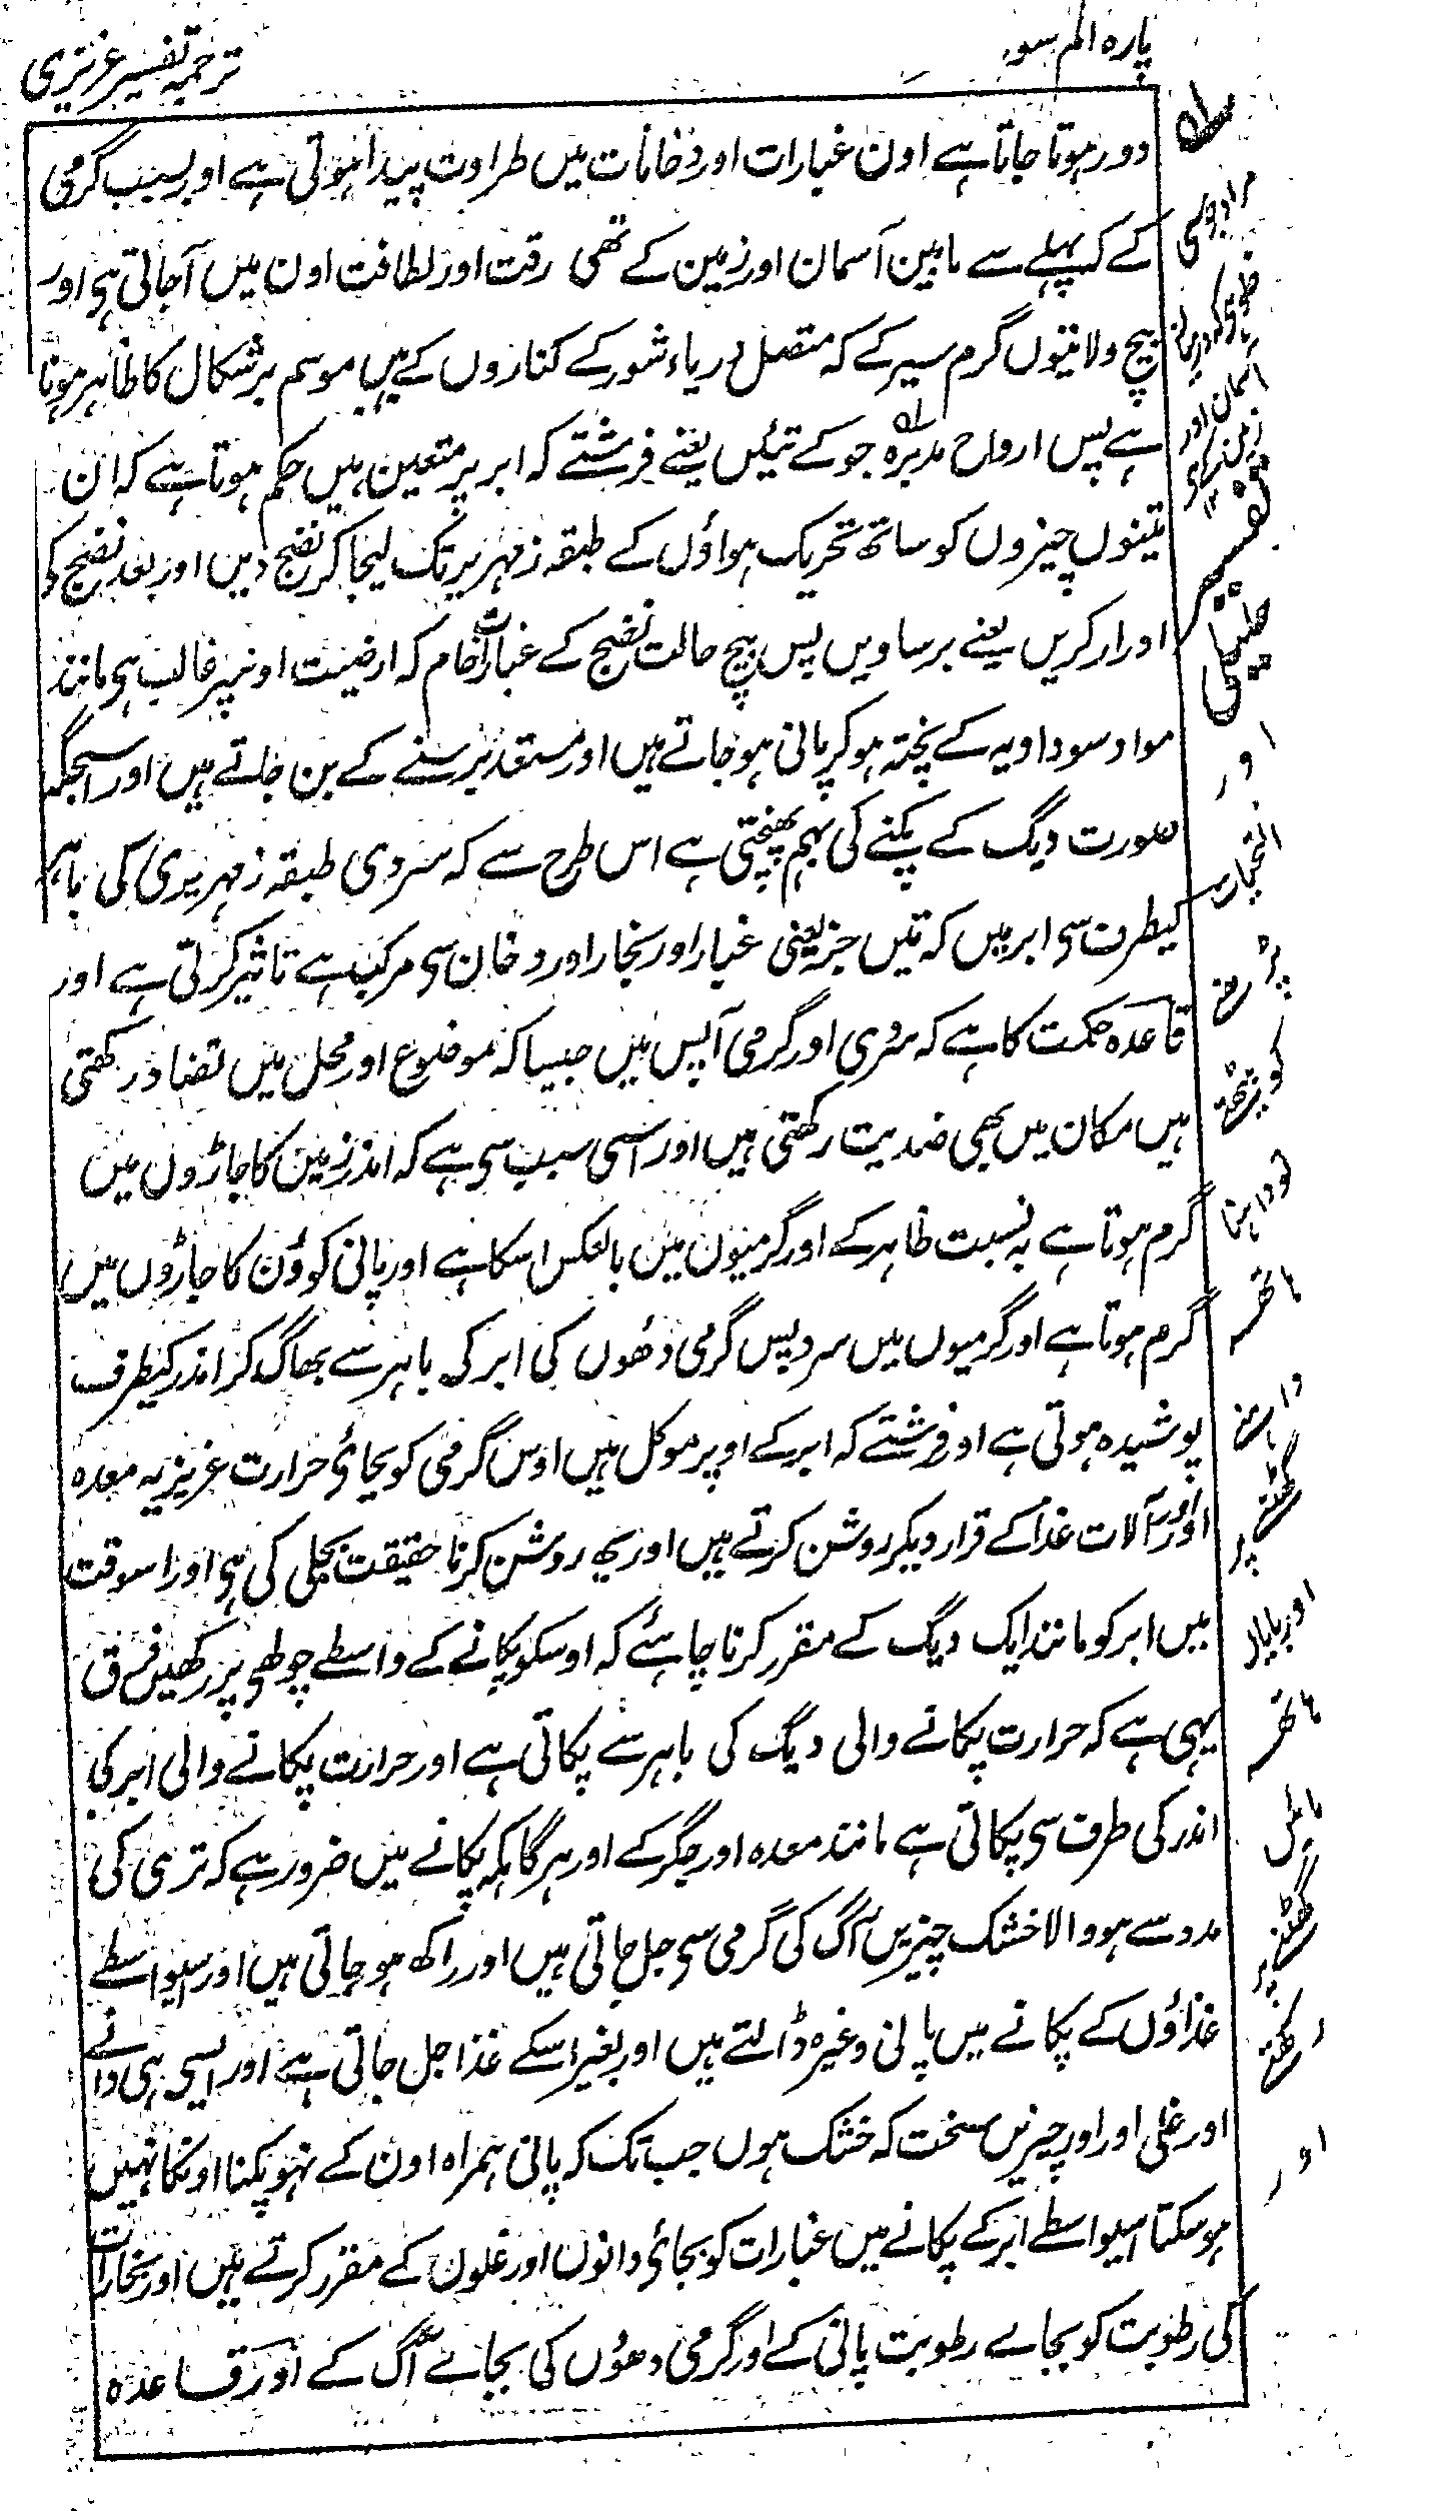 پارہ الم سورہ
ترجمہ تفسیر عزیزی
دور ہوتا جاتا ہے اون غبارات اور دخانات میں طراوت پیدا ہوتی ہے اور بسبب گرمی
کے کہ پہلے سے مابین آسمان اور زمین کے تھی رقت اور لطافت اون میں آجاتی ہی اور
بیچ ولایتوں گرم سیر کے کہ متصل دریاء شور کے کناروں کے ہیں موسم برشکال کا ظاہر ہوتا
ہے پس ارواح مدبرہ جو کے تئیں یعنے فرشتے کہ ابر پر متعین ہیں حکم ہوتا ہے کہ ان
تینوں چیزوں کو ساتھ تحریک ہواؤں کے طبقہ زمہریر تک لیجا کر نضج دیں اور بعد نضج کی
ادرار کریں یعنے برساویں پس بیچ حالت نضج کے غبارات خام کہ ارضیت اونپر غالب ہی مانند
مواد سوداویہ کے پختہ ہو کر پانی ہو جاتے ہیں اور مستعد برسنے کے بن جاتے ہیں اور اسجگہ
صورت دیگ کے پکنے کی بہم پہنچتی ہے اس طرح سے کہ سردی طبقہ زمہریری کی باہر
کیطرف سی ابر میں کہ تین جز یعنی غبار اور بخار اور دخان سی مرکب ہے تاثیر کرتی ہے اور
قاعدہ حکمت کا ہے کہ سردی اور گرمی آپس میں جیسا کہ موضوع اور محل میں تضاد رکھتی
ہیں مکان میں بھی ضدیت رکھتی ہیں اور اسی سبب سی ہے کہ اندر زمین کا جاڑوں میں
گرم ہوتا ہے بہ نسبت ظاہر کے اور گرمیوں میں بالعکس اسکا ہے اور پانی کوؤن کا جاڑوں میں
گرم ہوتا ہے اور گرمیوں میں سرد پس گرمی دھوں کی ابر کی باہر سے بھاگ کر اندر کیطرف
پوشیدہ ہوتی ہے اور فرشتے کہ ابر کے اوپر موکل ہیں اوس گرمی کو بجائے حرارت غریزیہ معدہ
اور آلات غذا کے قرار دیکر روشن کرتے ہیں اور یہ روشن کرنا حقیقت بجلی کی ہی اور اسوقت
میں ابر کو مانند ایک دیگ کے مقرر کرنا چاہئے کہ اوسکو پکانے کے واسطے چولھی پر رکھیں فرق
یہی ہے کہ حرارت پکانے والی دیگ کی باہر سے پکاتی ہے اور حرارت پکانے والی ابر کی
اندر کی طرف سی پکاتی ہے مانند معدہ اور جگر کے اور ہرگاہ کہ پکانے میں ضرور ہے کہ تری کی
مدد سے ہو والا خشک چیزیں آگ کی گرمی سی جل جاتی ہیں اور راکھ ہو جاتی ہیں اور اسیواسطے
غذاؤں کے پکانے میں پانی وغیرہ ڈالتے ہیں اور بغیر اسکے غذا جل جاتی ہے اور ایسی ہی دانے
اور غلی اور اور چیزیں سخت کہ خشک ہوں جب تک کہ پانی ہمراہ اون کے نہو پکنا اونکا نہیں
ہو سکتا اسیواسطے ابر کے پکانے میں غبارات کو بجائے دانوں اور غلوں کے مقرر کرتے ہیں اور بخارات
کی رطوبت کو بجاے رطوبت پانی کے اور گرمی دھوں کی بجائے آگ کے اور قاعدہ
آسمان اور
اور
التحیات
پڑھنے
کو بیٹھتے
تو داہنا
ہاتھ
داہنے
گھٹنے پر
اور بایاں
ہاتھ
بائیں
گھٹنے پر
رکھتے
اور